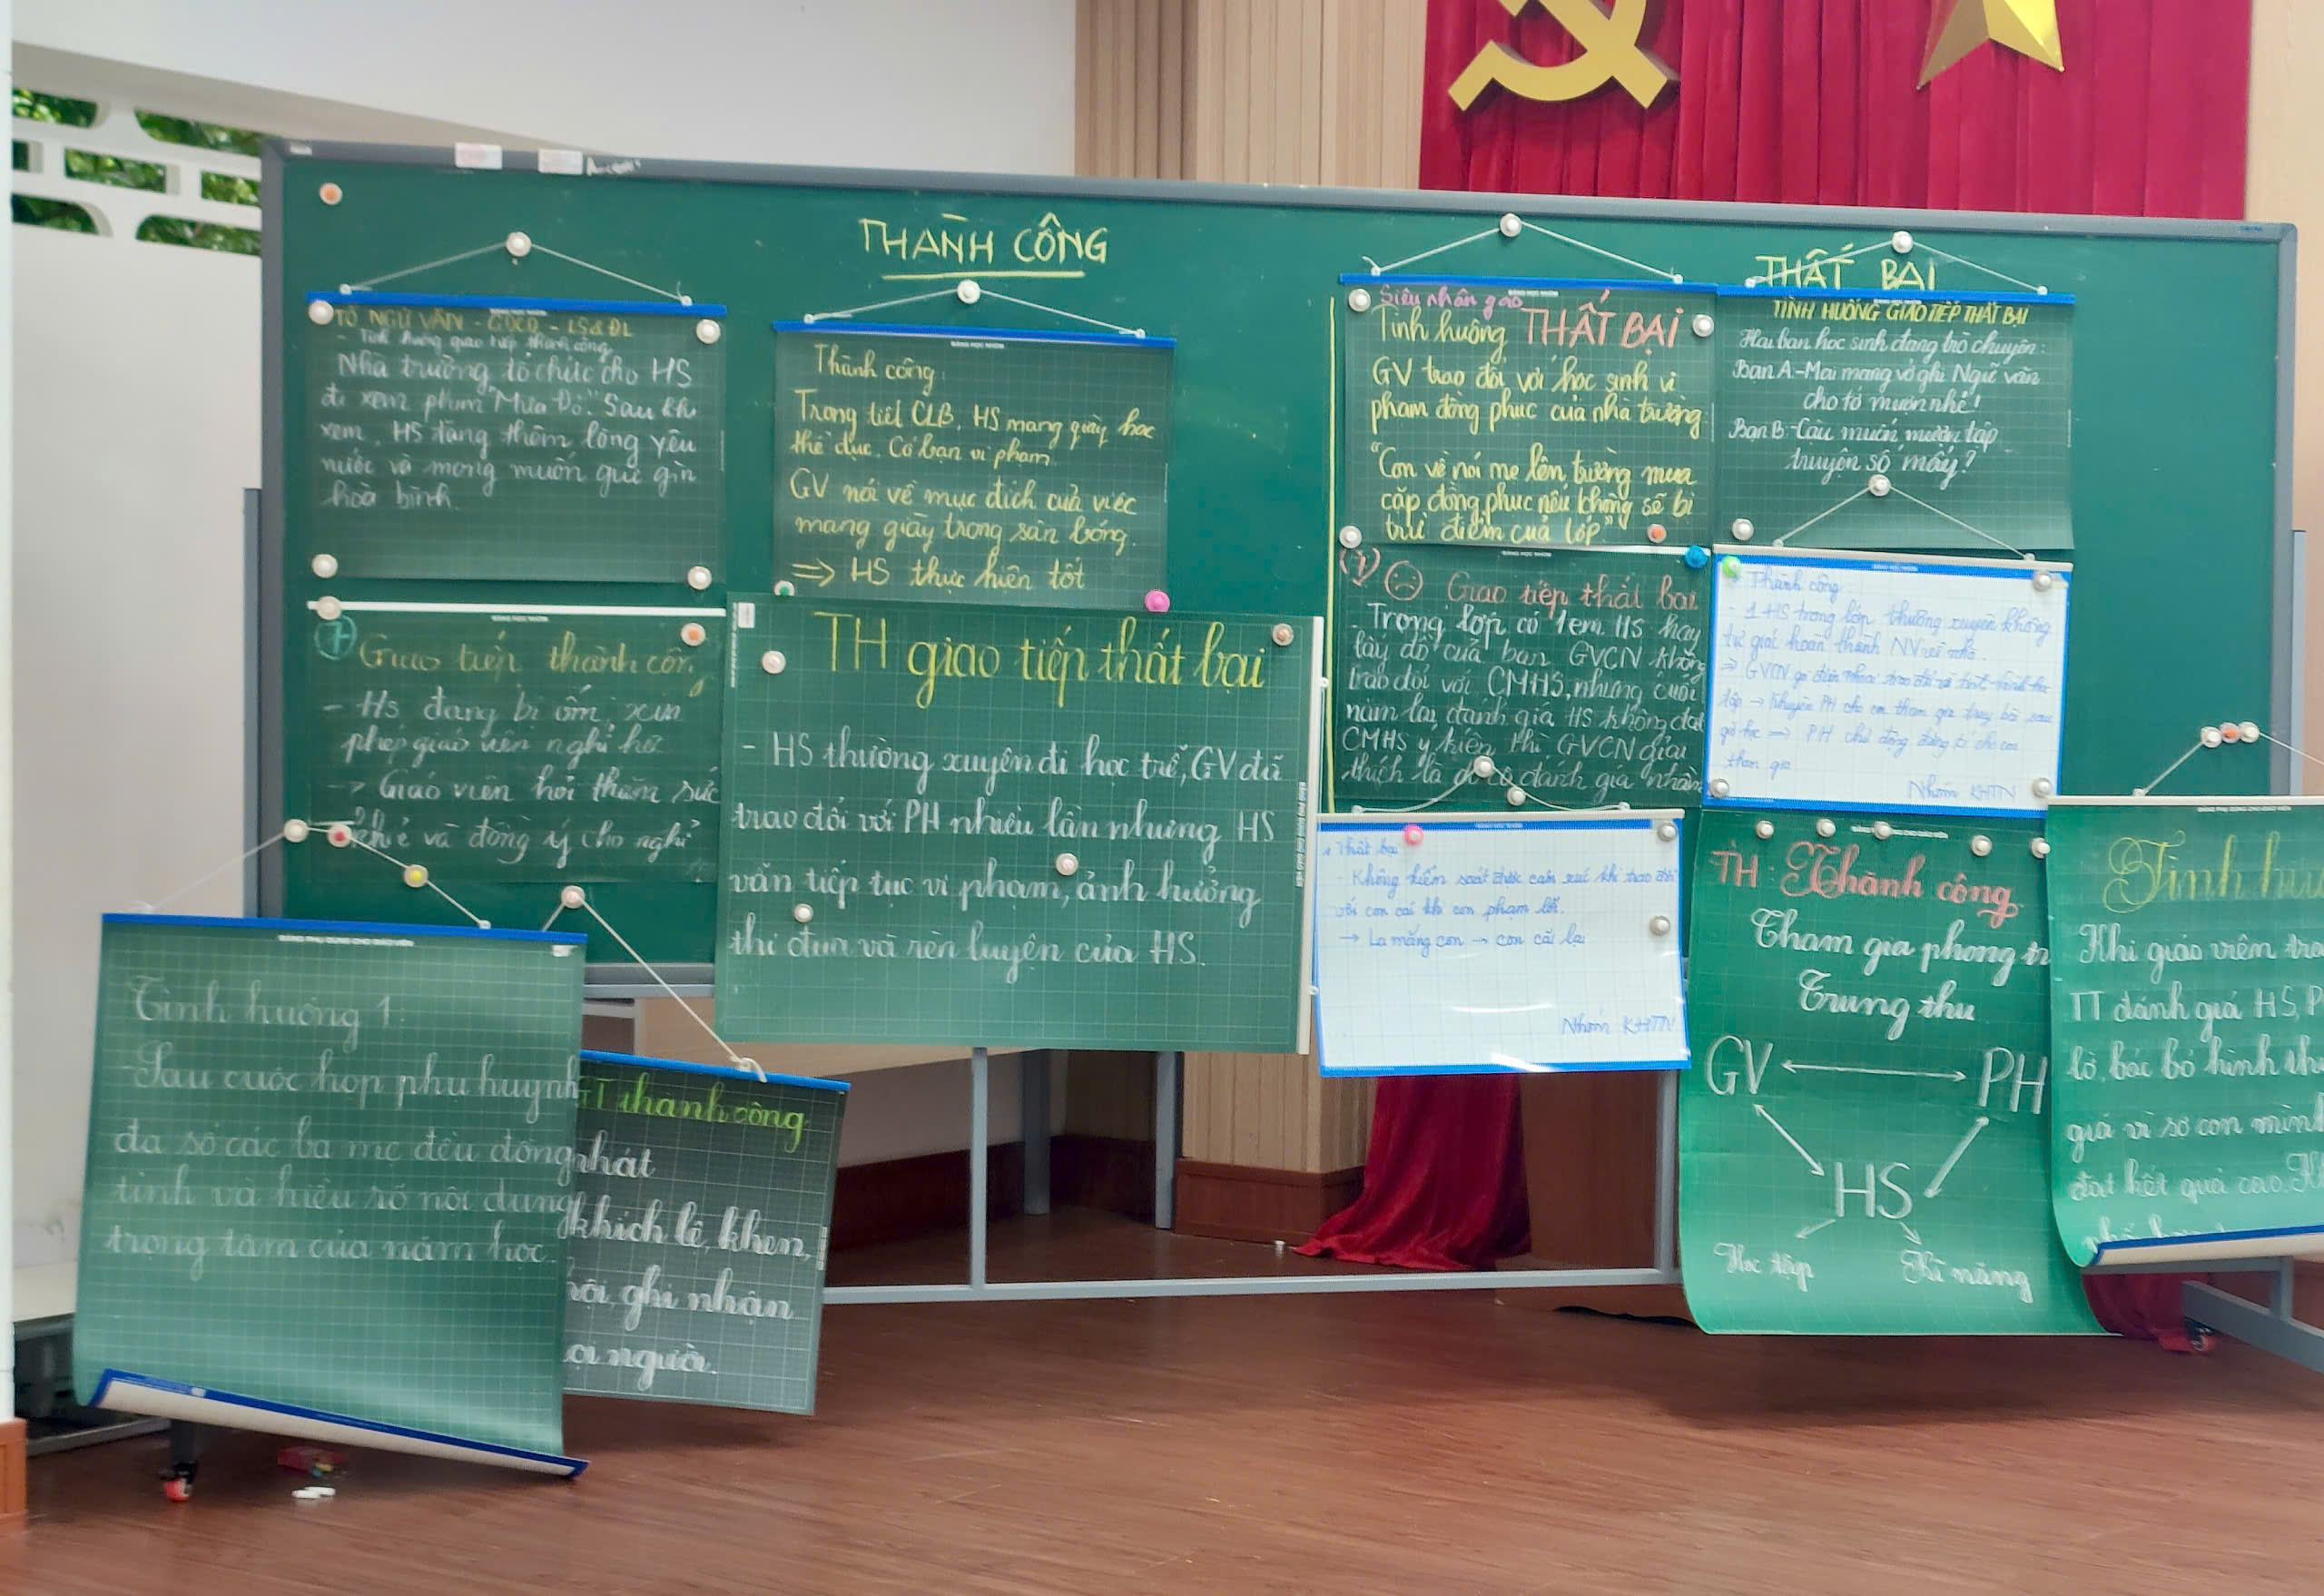 THÀNH CÔNG
THẤT BẠI
TỔ NGỮ VĂN - GDCD - LS&ĐL
- Tình huống giao tiếp thành công
Nhà trường tổ chức cho HS
đi xem phim "Mưa Đỏ". Sau khi
xem, HS tăng thêm lòng yêu
nước và mong muốn giữ gìn
hoà bình.
Thành công:
Trong tiết CLB, HS mang giày học
thể dục. Có bạn vi phạm.
GV nói về mục đích của việc
mang giày trong sân bóng.
=> HS thực hiện tốt
Siêu nhân gao
Tình huống THẤT BẠI
GV trao đổi với học sinh vi
phạm đồng phục của nhà trường
"Con về nói mẹ lên trường mua
cặp đồng phục nếu không sẽ bị
trừ điểm của lớp"
TÌNH HUỐNG GIAO TIẾP THẤT BẠI
Hai bạn học sinh đang trò chuyện:
Bạn A: -Mai mang vở ghi Ngữ văn
cho tớ mượn nhé!
Bạn B: -Cậu muốn mượn tập
truyện số mấy?
7 Giao tiếp thành công
- Hs đang bị ốm, xin
phép giáo viên nghỉ học
-> Giáo viên hỏi thăm sức
khỏe và đồng ý cho nghỉ
TH giao tiếp thất bại
- HS thường xuyên đi học trễ, GV đã
trao đổi với PH nhiều lần nhưng HS
vẫn tiếp tục vi phạm, ảnh hưởng
thi đua và rèn luyện của HS.
(7) Giao tiếp thất bại
- Trong lớp có 1 em HS hay
lấy đồ của bạn. GVCN không
trao đổi với CMHS, nhưng cuối
năm lại đánh giá HS không đạt
CMHS ý kiến thì GVCN giải
thích là do cô đánh giá nhầm
Thành công:
- 1 HS trong lớp thường xuyên không
tự giác hoàn thành NV về nhà.
=> GVCN gọi điện thoại trao đổi về tình hình học
tập -> khuyên PH cho em tham gia truy bài sau
giờ học -> PH chủ động đăng kí cho con
tham gia
Nhóm KHTN
Thất bại
- Không kiểm soát được cảm xúc khi trao đổi
với con cái khi con phạm lỗi.
-> La mắng con -> con cãi lại
Nhóm KHTN
TH: Thành công
Tham gia phong tr
Trung thu
GV PH
HS
Học tập Kĩ năng
Khi giáo viên tra
TT đánh giá HS, P
lờ, bác bỏ hình th
giá vì sợ con mình
đạt kết quả cao.
Tình huống 1:
- Sau cuộc họp phụ huynh
đa số các ba mẹ đều đồng
tình và hiểu rõ nội dung
trọng tâm của năm học.
GT thành công
khích lệ, khen,
ghi nhận
người.